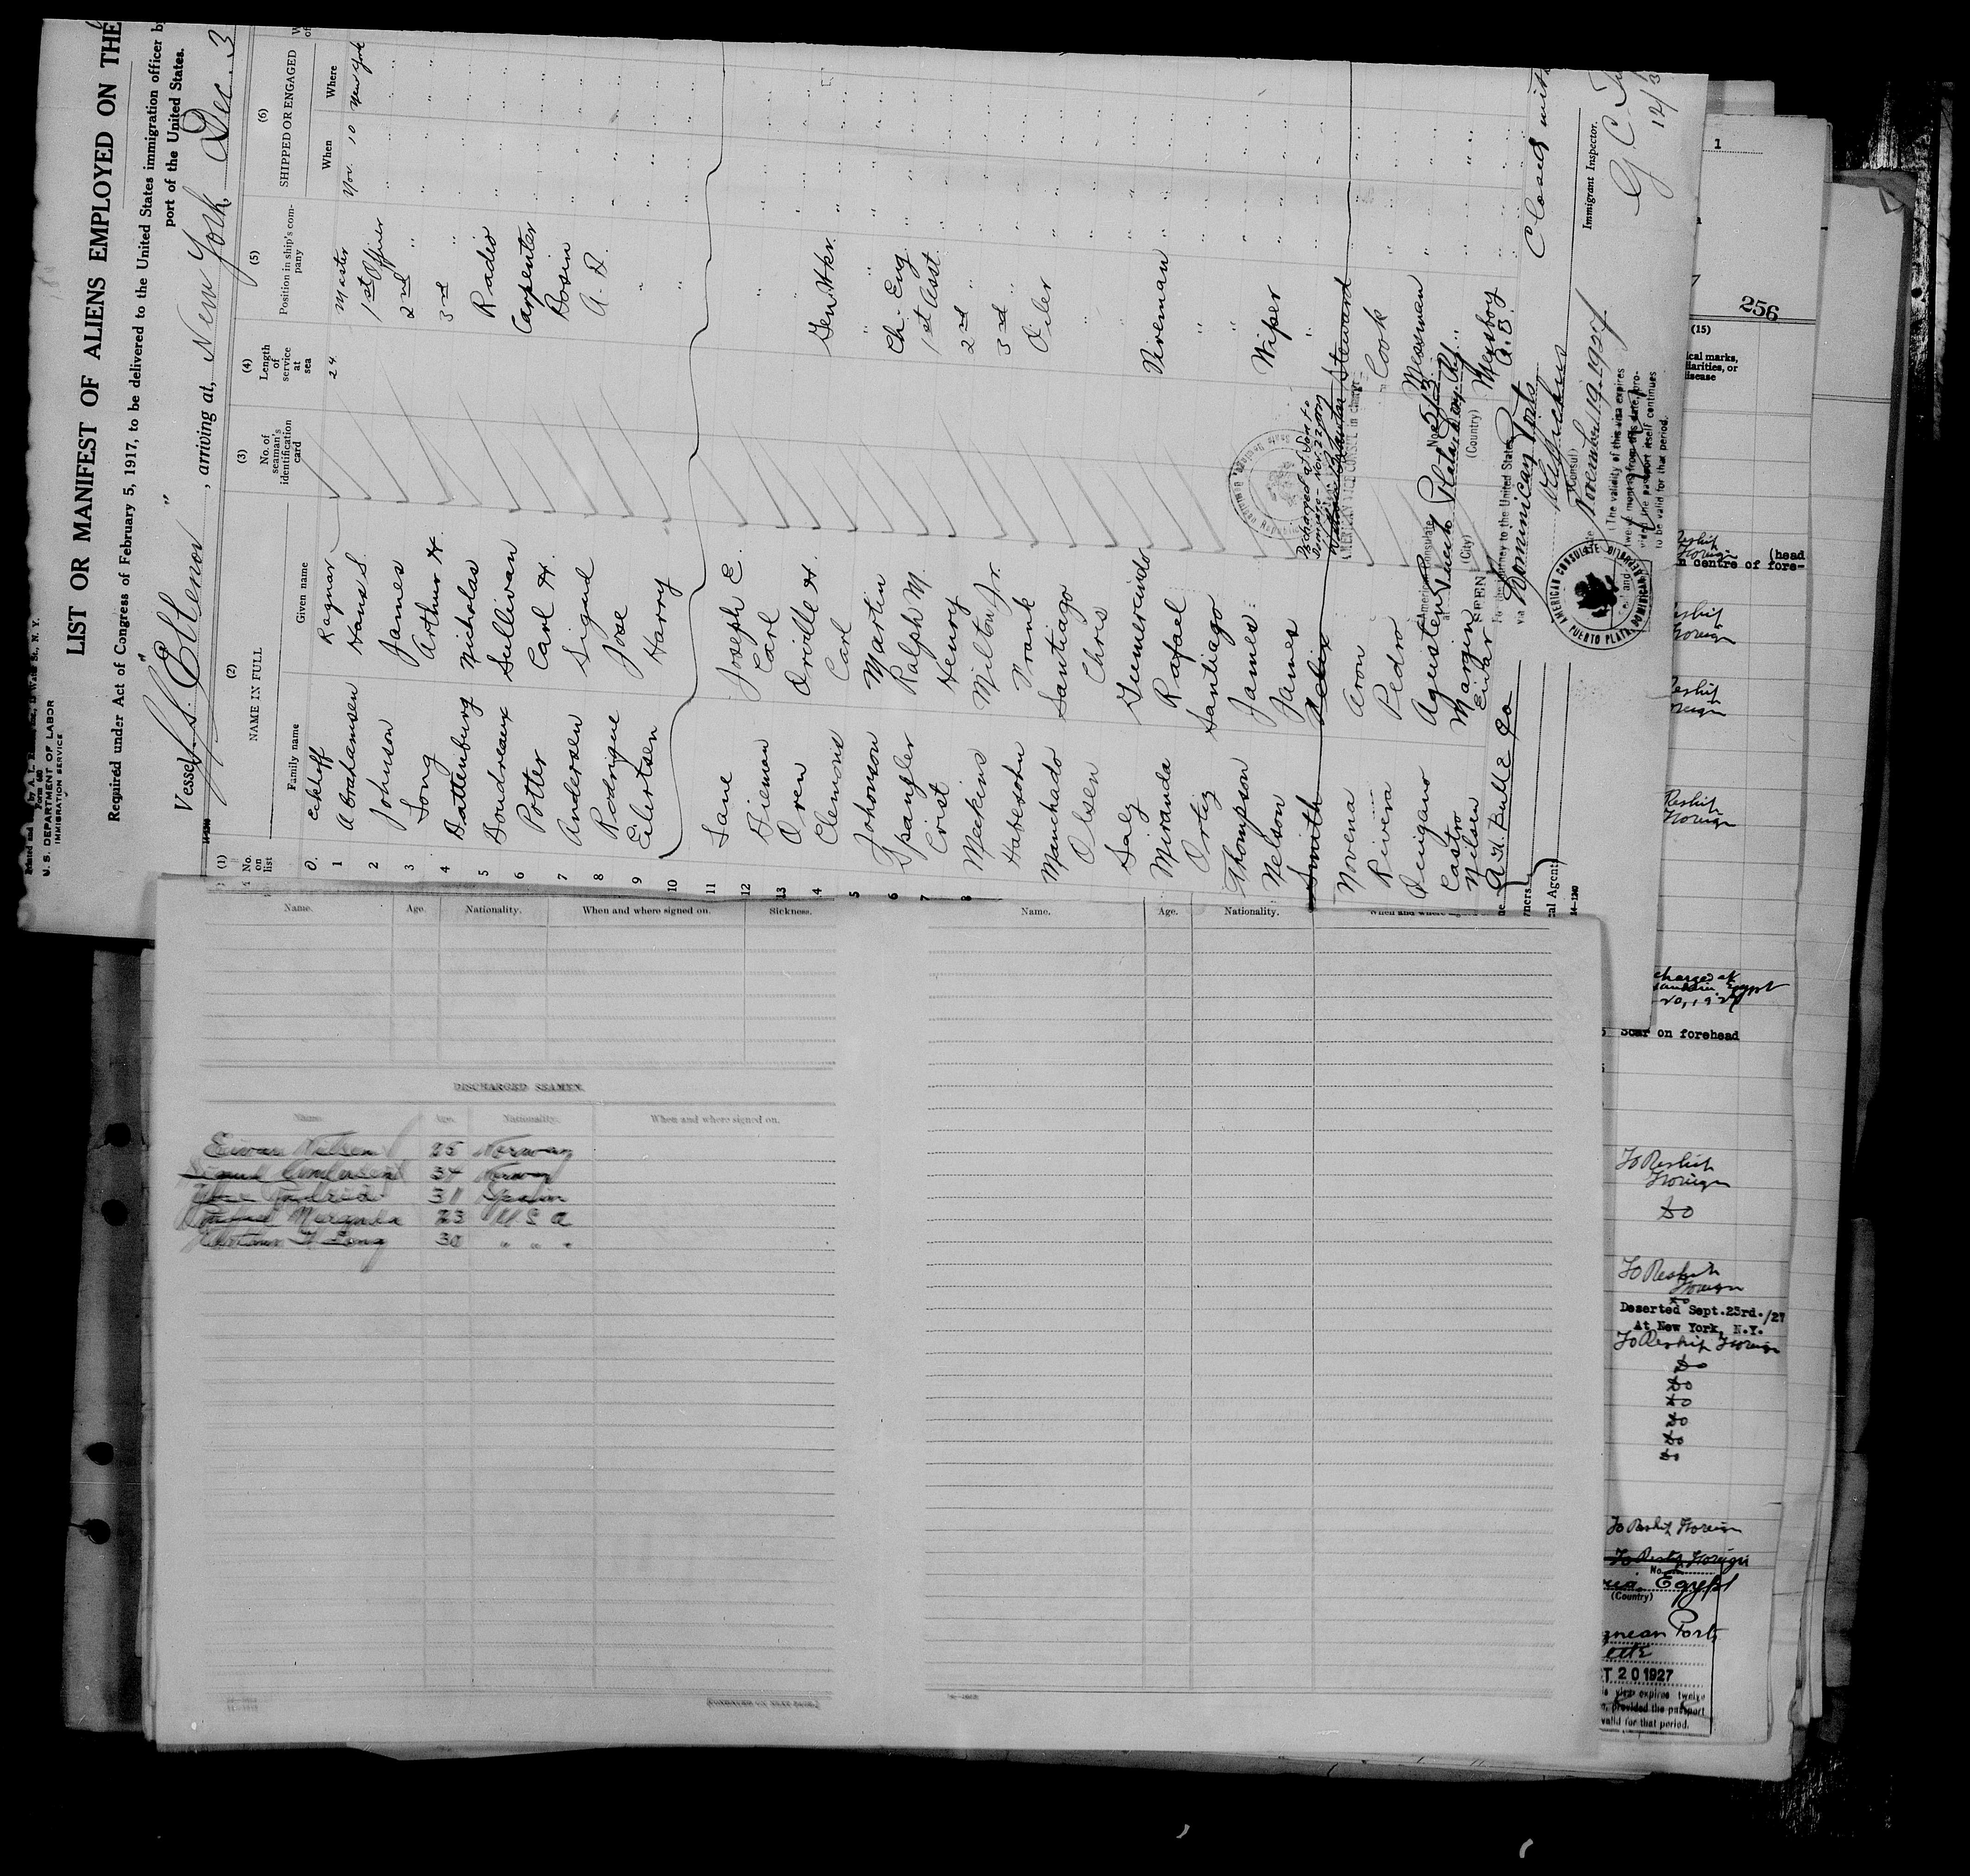 U.S. DEPARTMENT OF LABOR
IMMIGRATION SERVICE
Form 680
LIST OR MANIFEST OF ALIENS EMPLOYED ON THE
Required under Act of Congress of February 5, 1917, to be delivered to the United States immigration officer by
port of the United States.
Vessel S.S. "Ellenor", arriving at, New York, Dec. 3
(1) (2) (3) (4) (5) (6)
No. on list
NAME IN FULL
Family name Given name
No. of seaman's identification card
Length of service at sea
Position in ship's company
SHIPPED OR ENGAGED
When Where
0. Eckhoff Ragnar 24 Master Nov. 10 New York
1 Abrahamsen Hans S. 1st Officer " "
2 Johnson James 2nd " " "
3 Long Arthur H. 3rd " " "
4 Battenburg Nicholas Radio " "
5 Boudreaux Sullivan Carpenter " "
6 Potter Carl H. Bosin " "
7 Andersen Sigurd A. B. " "
8 Rodrigue Jose " " "
9 Eilertsen Harry " " "
10
11 Lane Joseph E. " "
12 Dieman Carl " " "
13 Oren Orville H. " "
4 Clemons Carl Gen. Wkr. " "
5 Johnson Martin " " "
6 Spangler Ralph M. Ch. Eng " "
7 Crist Henry 1st Asst. " "
8 Meekins Milton Jr. 2nd " " "
Habersohn Frank 3rd " " "
Manchado Santiago Oiler " "
Olsen Chris " " "
Salz Gumercindo " " "
Miranda Rafael Fireman " "
Ortiz Santiago " " "
Thompson James " " "
Nelson James Wiper " "
Smith Felix Steward
Novena Aron Cook " "
Rivera Pedro "
Agusten Messman " "
Castro Margin " "
Nilsen Einar Messboy A.B. " "
A. H. Bull & Co
Discharged at Santo Domingo - Nov. 22
AMERICAN VICE CONSUL in charge
American Consulate No. 513
at Puerto Plata
(City) (Country)
SEEN
For the journey to the United States
via Dominican Ports
(Consul)
Date November 19, 1927
(The validity of this visa expires
twelve months from this date, provided the passport itself continues
to be valid for that period.
AMERICAN CONSULATE
PUERTO PLATA, DOMINICAN REPUBLIC
Closed with
Immigrant Inspector.
14-1240
Name. Age. Nationality. When and where signed on. Sickness.
Name. Age. Nationality. When and where signed on.
DISCHARGED SEAMEN.
Name. Age. Nationality. When and where signed on.
Einar Nilsen 25 Norway
Sigurd Andersen 34 Norway
Jose Rodrid 31 Spain
Rafael Miranda 23 U.S.A
Arthur H Long 30 " " "
1
256
(15)
ical marks,
liarities, or
disease
Reship
Foreign (head
n centre of fore-
Reship
Foreign
Reship
Foreign
Reship
Foreign
charged at
Egypt
20, 1927
Scar on forehead
To Reship
Foreign
do
To Reship
Foreign
Deserted Sept.23rd./27
At New York, N.Y.
To Reship Foreign
do
do
do
do
do
do
To Reship Foreign
To Reship Foreign
No.
Egypt
(Country)
nean Ports
T 20 1927
is visa expires twelve
n, provided the passport
valid for that period.